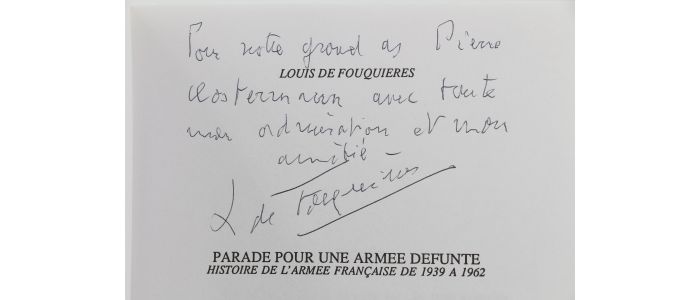 Pour notre grand as Pierre
LOUIS DE FOUQUIERES
Clostermann avec toute
mon admiration et mon
amitié –
L de Fouquières
PARADE POUR UNE ARMEE DEFUNTE
HISTOIRE DE L'ARMEE FRANÇAISE DE 1939 A 1962